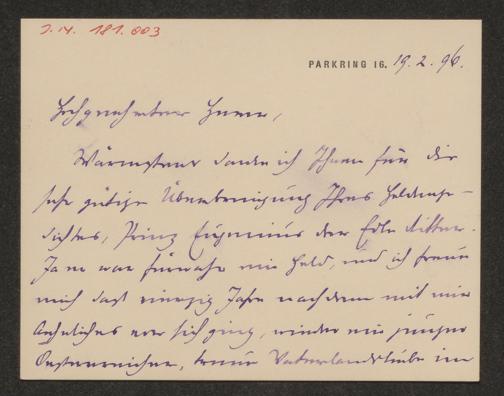 J.N. 181.003
PARKRING 16. 19.2.96.
Hochgeehrter Herr,
Wärmstens danke ich Ihnen für die
sehr gütige Übersendung Ihres Heldenge-
dichtes, Prinz Eugenius der Edle Ritter.
Ja er war fürwahr ein Held, und ich freue
mich daß vierzig Jahre nachdem mit mir
Aehnliches vor sich ging, wieder ein junger
Oesterreicher, treue Vaterlandsliebe im